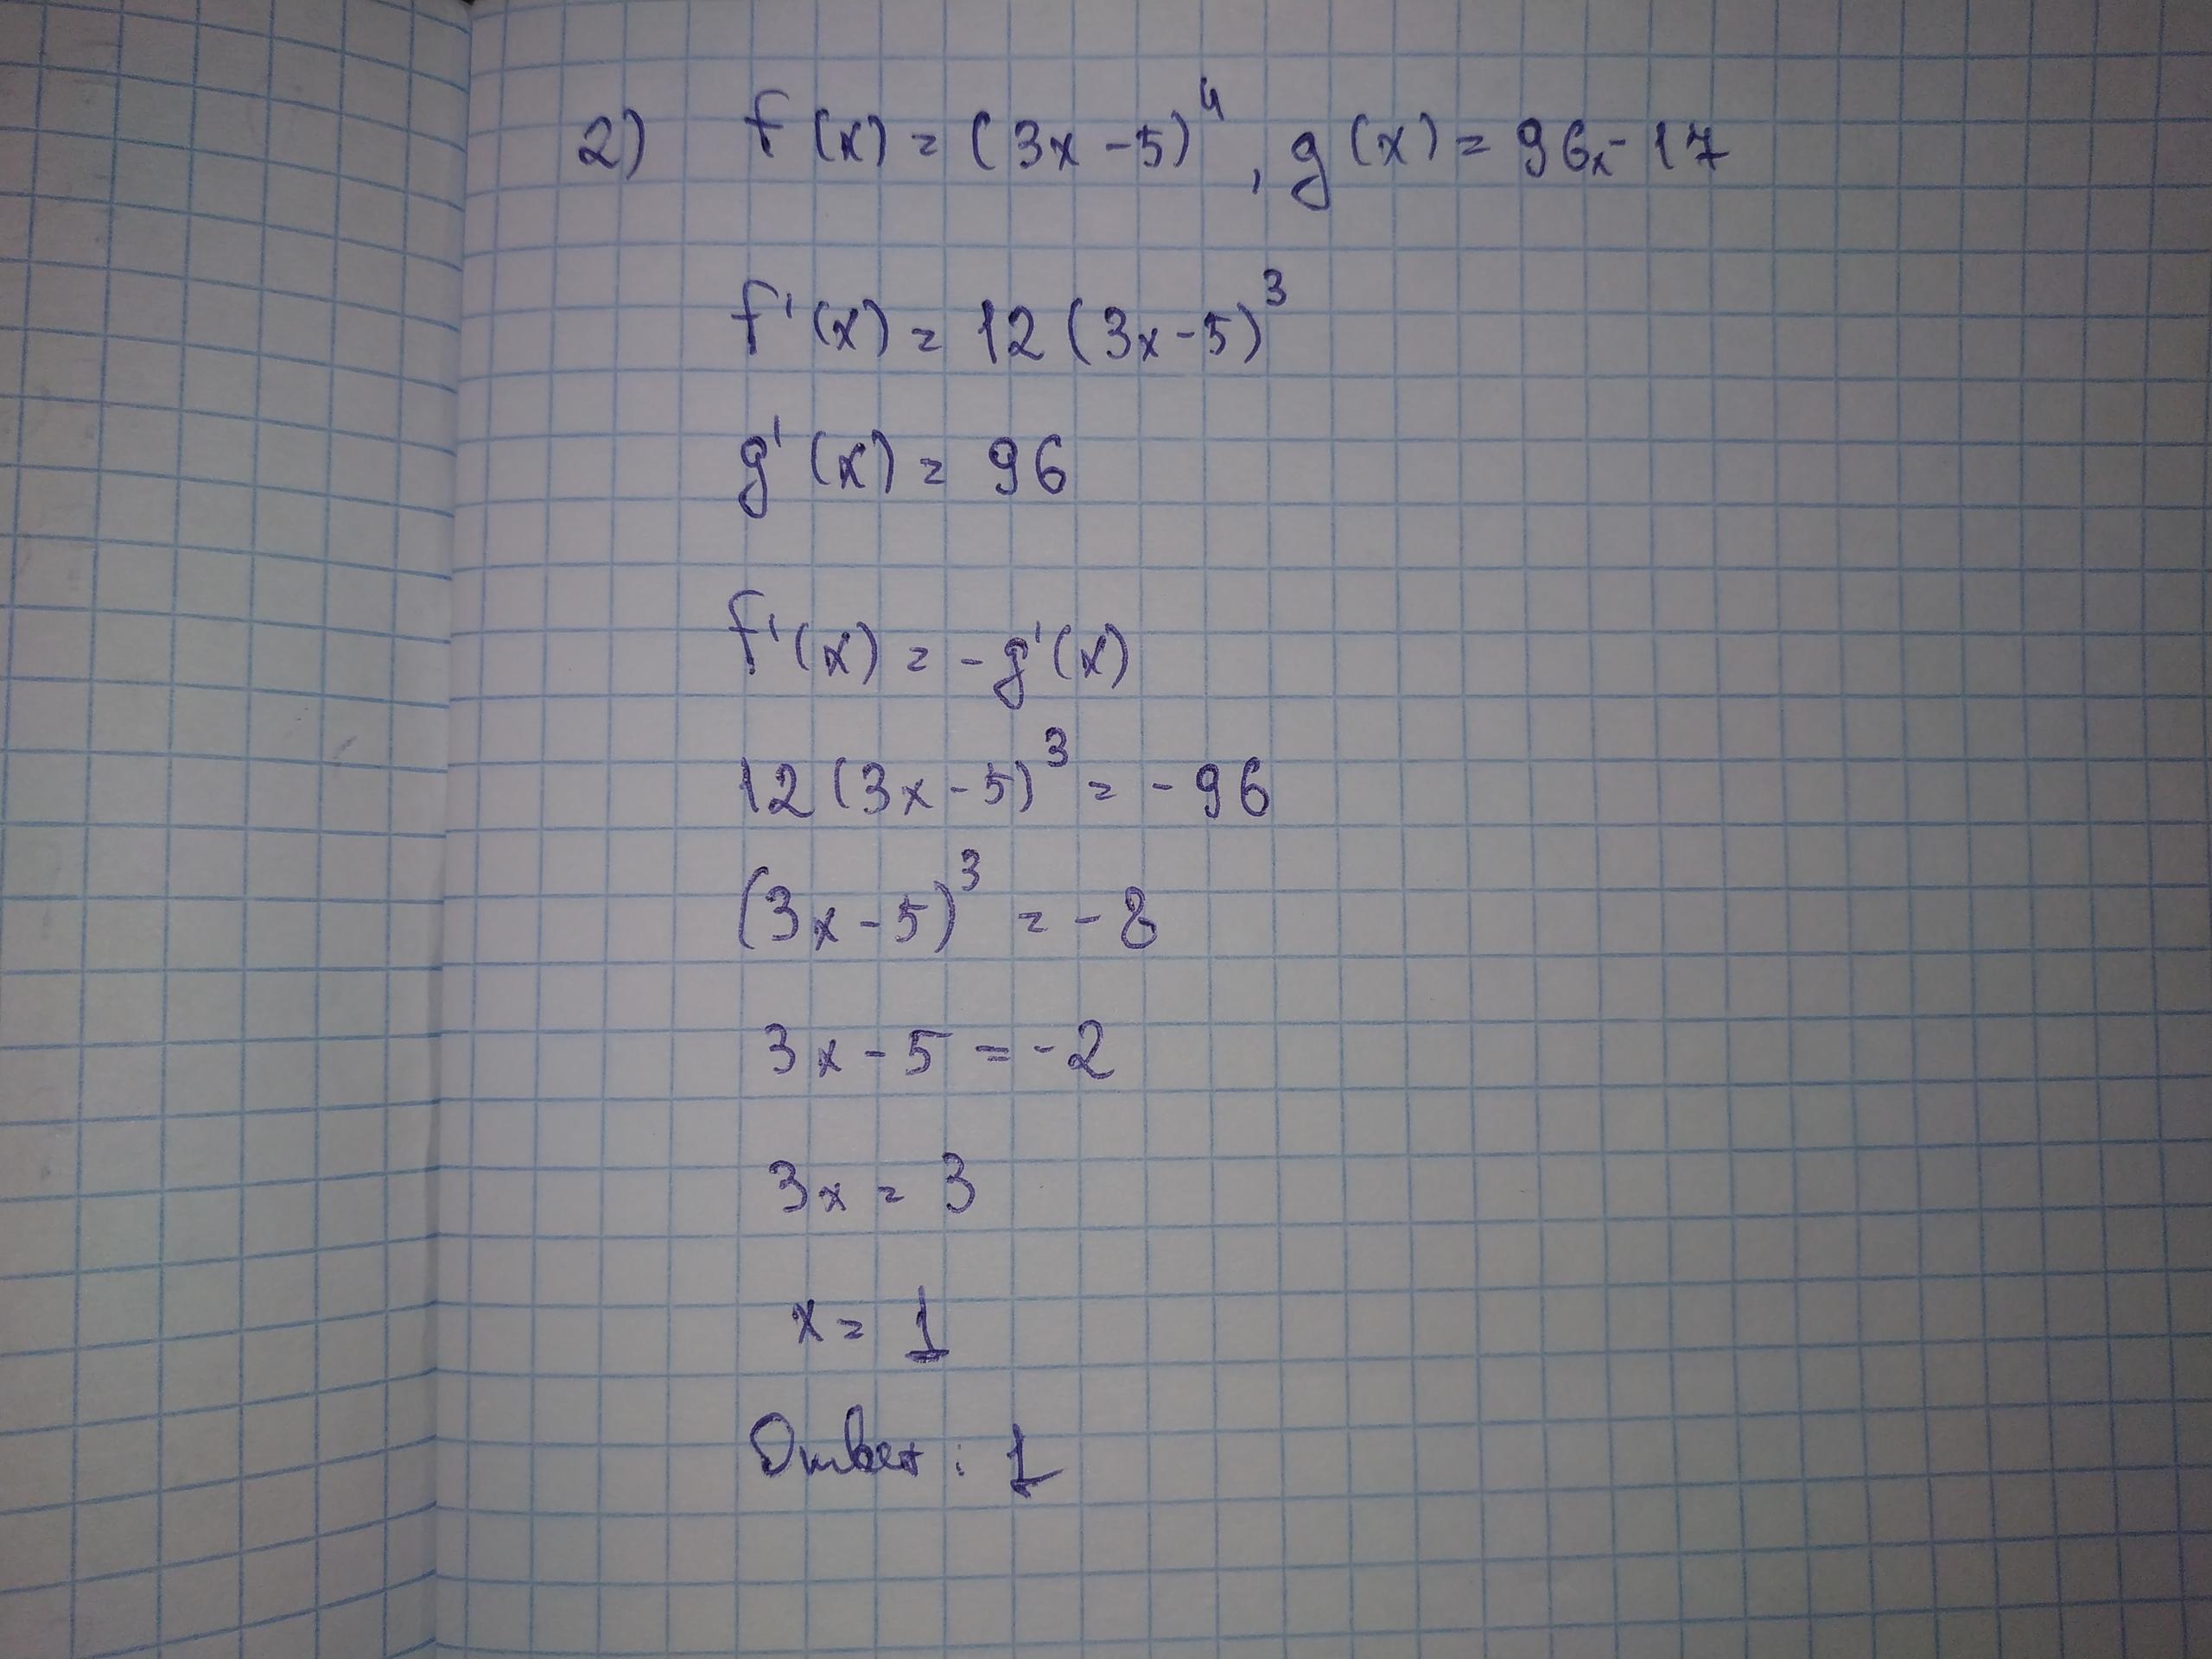 2) f(x) = (3x - 5)⁴, g(x) = 96x - 17
f'(x) = 12(3x - 5)³
g'(x) = 96
f'(x) = -g'(x)
12(3x - 5)³ = -96
(3x - 5)³ = -8
3x - 5 = -2
3x = 3
x = 1
Ответ: 1